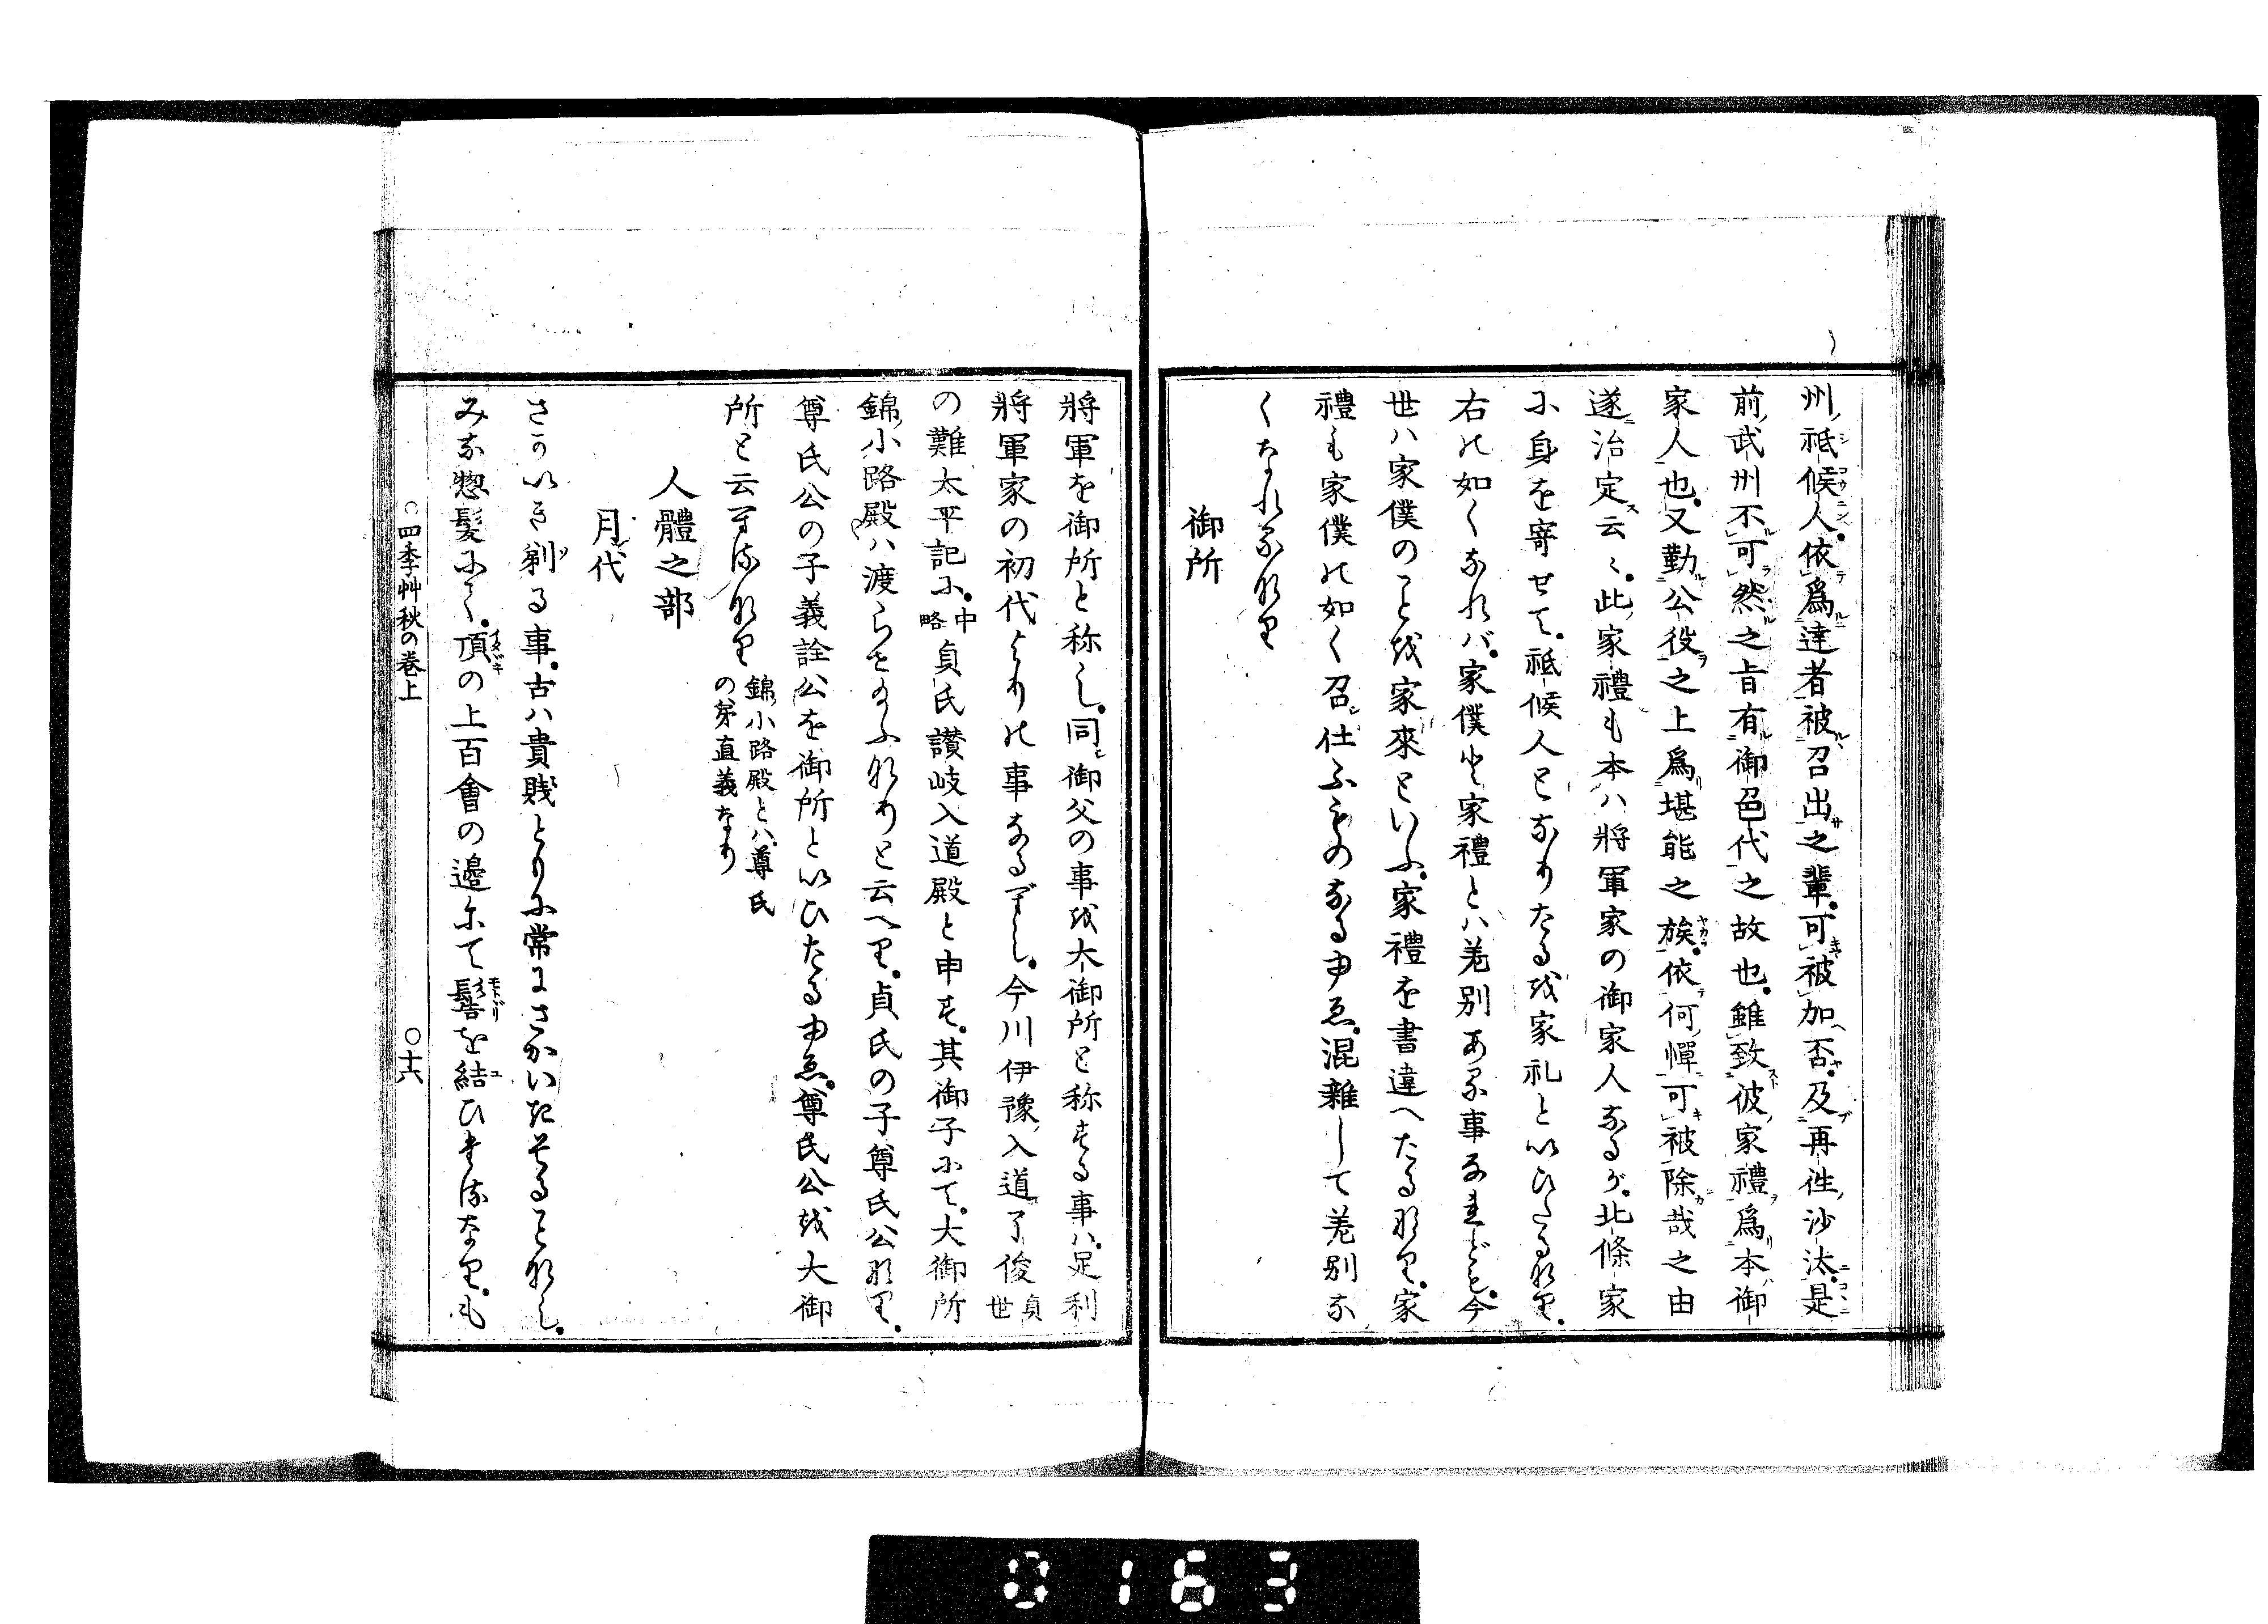 州祗候人。依為達者被召出之輩。可被加否。及再往沙汰。是
前武州不可然之旨有御色代之故也。雖致彼家禮為本御
家人也。又勤公役之上為堪能之族。依何憚可被除哉之由
遂治定云〻。此家禮も本ハ將軍家の御家人なるが。北條家
に身を寄せて。祗候人となりたるを家礼といひたるなり。
右の如くなれバ。家僕と家禮とハ差別ある事なれども。今
世ハ家僕のことを家來といふ。家禮を書違へたるなり。家
禮も家僕の如く召仕ふものなるゆゑ。混雜して差別な
くなれるなり
御所
將軍を御所と称し。同御父の事を大御所と称する事ハ。足利
將軍家の初代よりの事なるべし。今川伊豫入道了俊貞世
の難太平記に。中略貞氏讃岐入道殿と申す。其御子にて。大御所
錦小路殿ハ渡らせ給ふなりと云へり。貞氏の子尊氏公なり。
尊氏公の子義詮公を御所といひたるゆゑ。尊氏公を大御
所と云するなり 錦小路殿とハ尊氏の弟直義なり
人體之部
月代
さかいき剃る事。古ハ貴賤ともに常にさかいきそることなし。
みな惣髮にて。頂の上百會の邊にて髻を結ひするなり。も
○四季艸秋の巻上 ○十六
0163